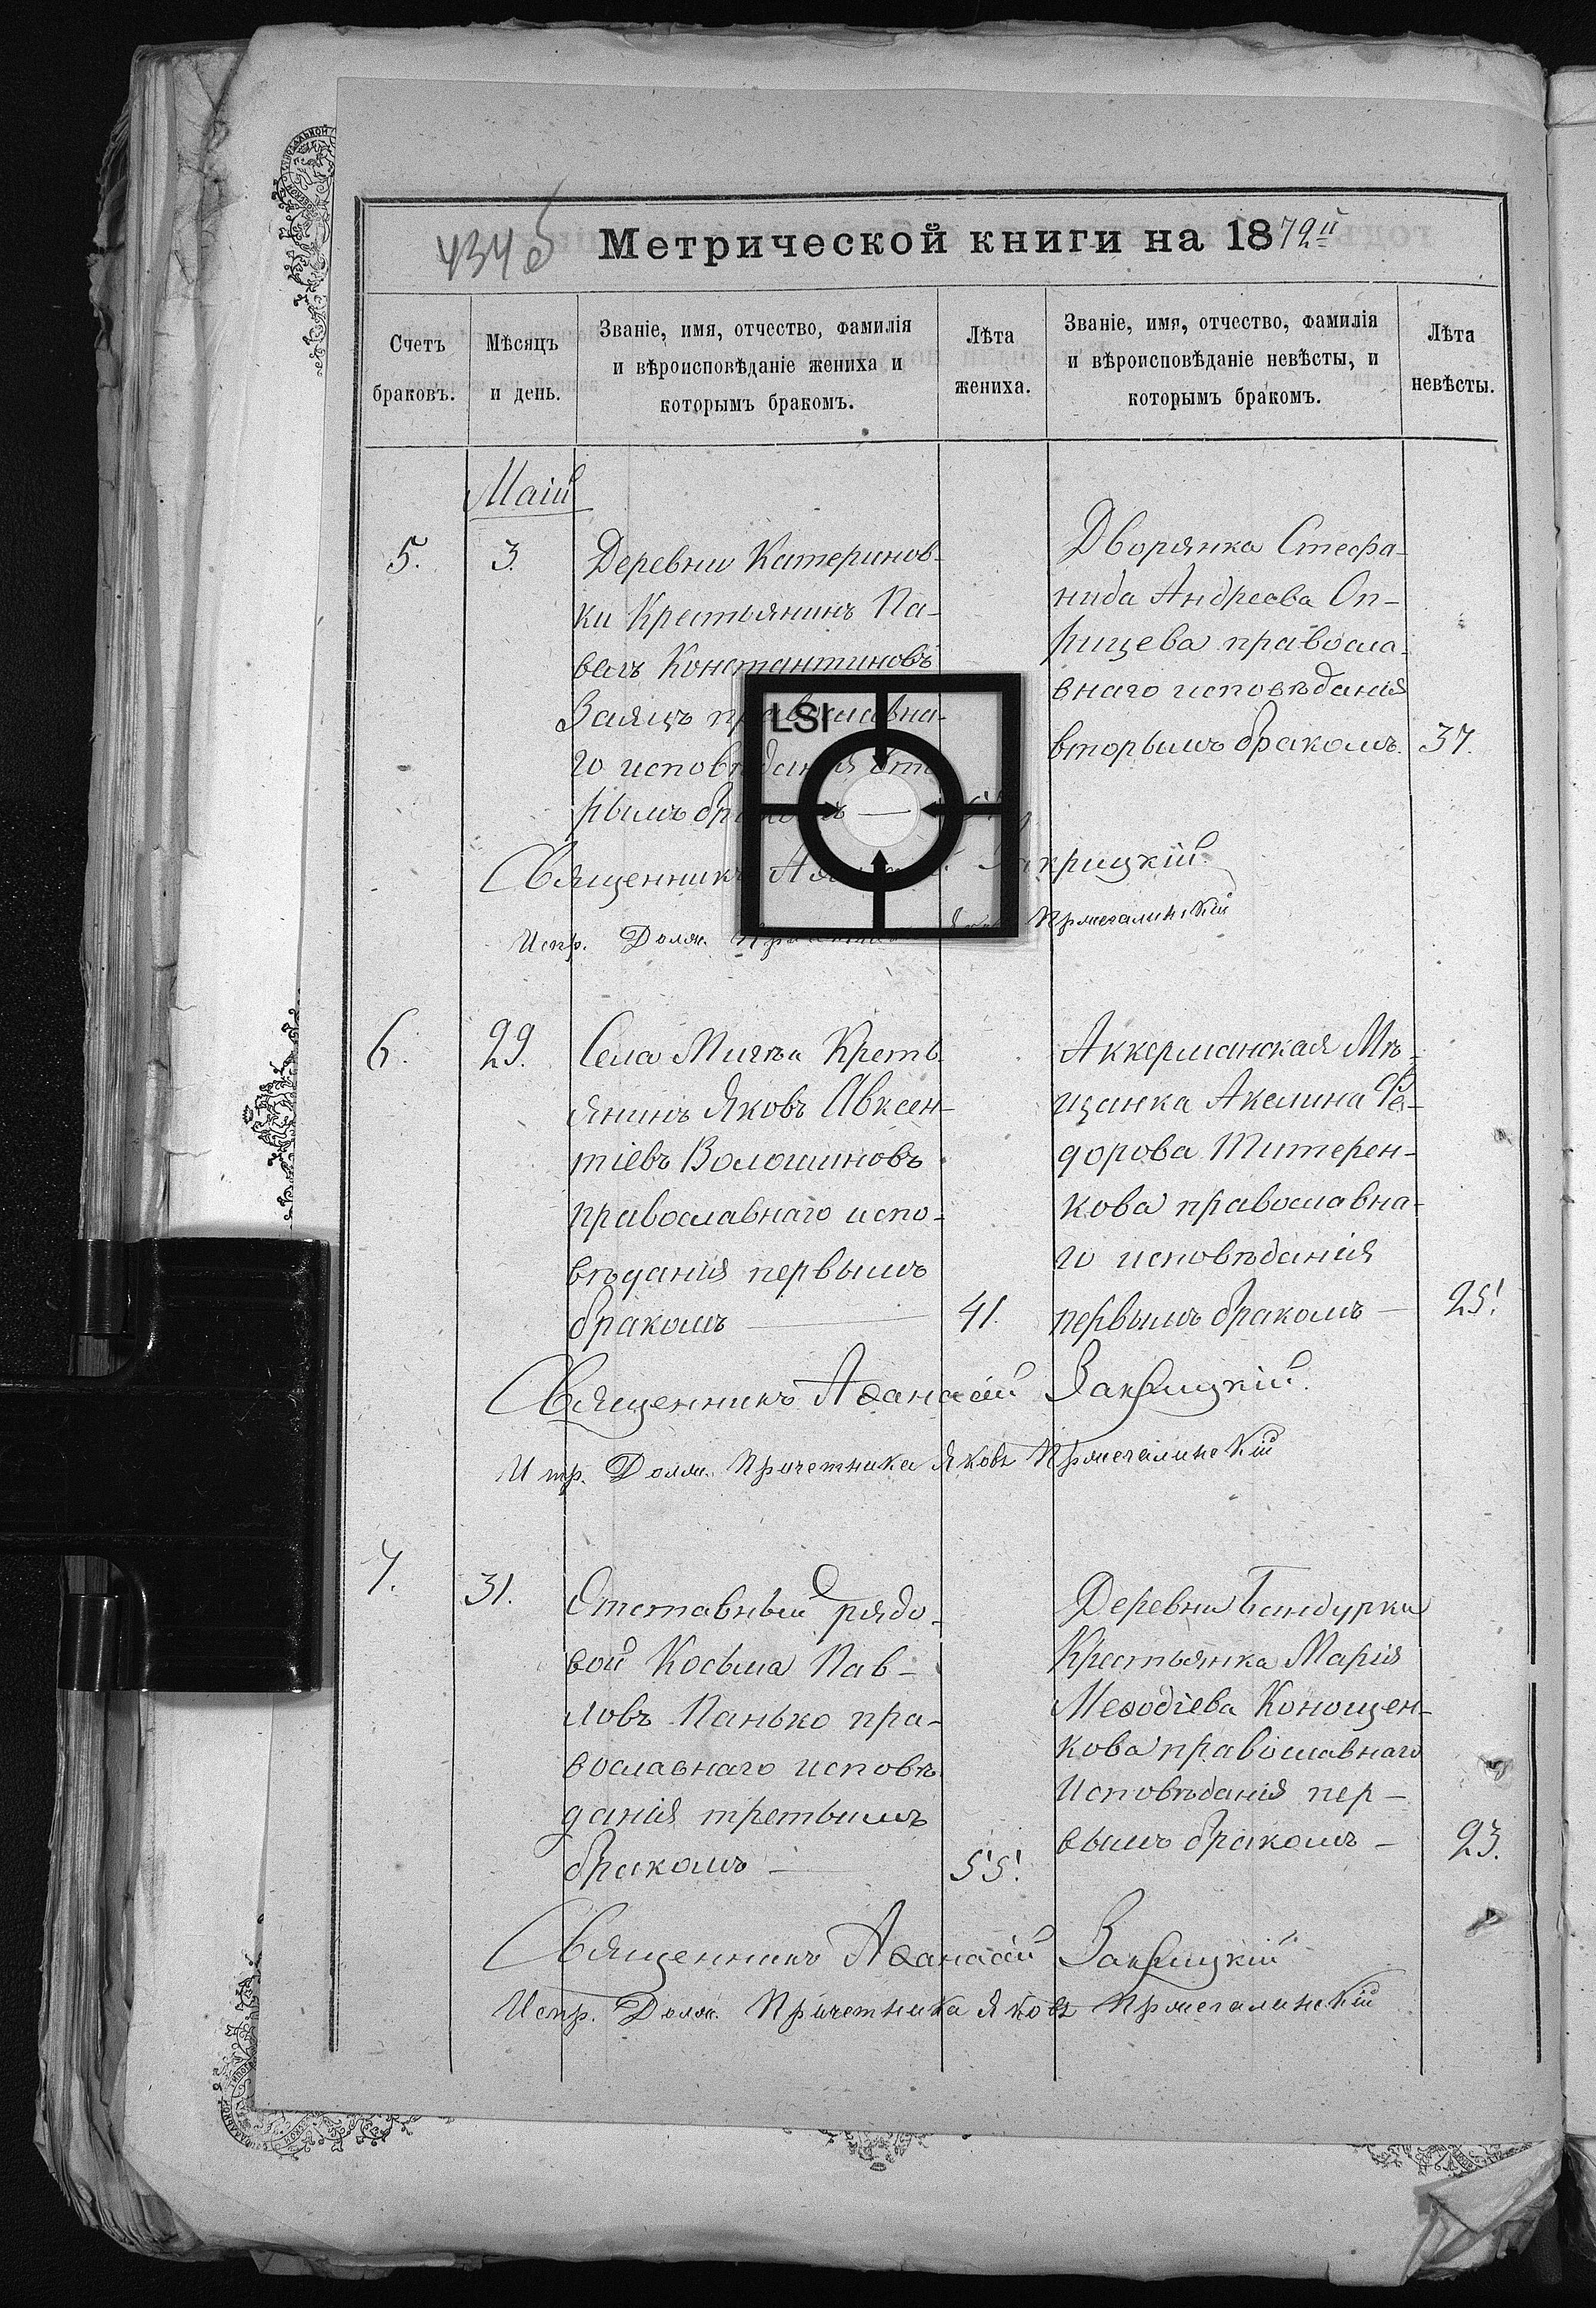 434б
Метрической книги на 1872й
Счетъ браковъ.
Мѣсяцъ и день.
Званіе, имя, отчество, фамилія и вѣроисповѣданіе жениха и которымъ бракомъ.
Лѣта жениха.
Званіе, имя, отчество, фамилія и вѣроисповѣданіе невѣсты, и которымъ бракомъ.
Лѣта невѣсты.
Маій
5.
3.
Деревни Катеринов-
ки Крестьянинъ Па-
велъ Константиновъ
Заяцъ православна-
го исповѣданія вто
рымъ бракомъ —
Дворянка Стефа-
нида Андреева Оп-
рицева правосла-
внаго исповѣданія
вторымъ бракомъ. 37.
LSI
Священникъ Закрицкій.
Испр. Долж.
6.
29.
Села Мигѣи Кресть
янинъ Яковъ Авксен-
тіевъ Волошиновъ
православнаго испо-
вѣданія первымъ
бракомъ — 41.
Аккерманская Мѣ-
щанка Акелина Фе-
дорова Титерен-
кова православна-
го исповѣданія
первымъ бракомъ — 25.
Священникъ Аѳанасій Закрицкій.
Испр. Долж. Причетника Яковъ
7.
31.
Отставный рядо-
вой Косьма Пав-
ловъ Панько пра-
вославнаго исповѣ
данія третьимъ
бракомъ — 55.
Деревни Бандурки
Крестьянка Марія
Меѳодіева Конощен-
кова православнаго
Исповѣданія пер-
вымъ бракомъ — 23.
Священникъ Аѳанасій Закрицкій
Испр. Долж. Причетника Яковъ